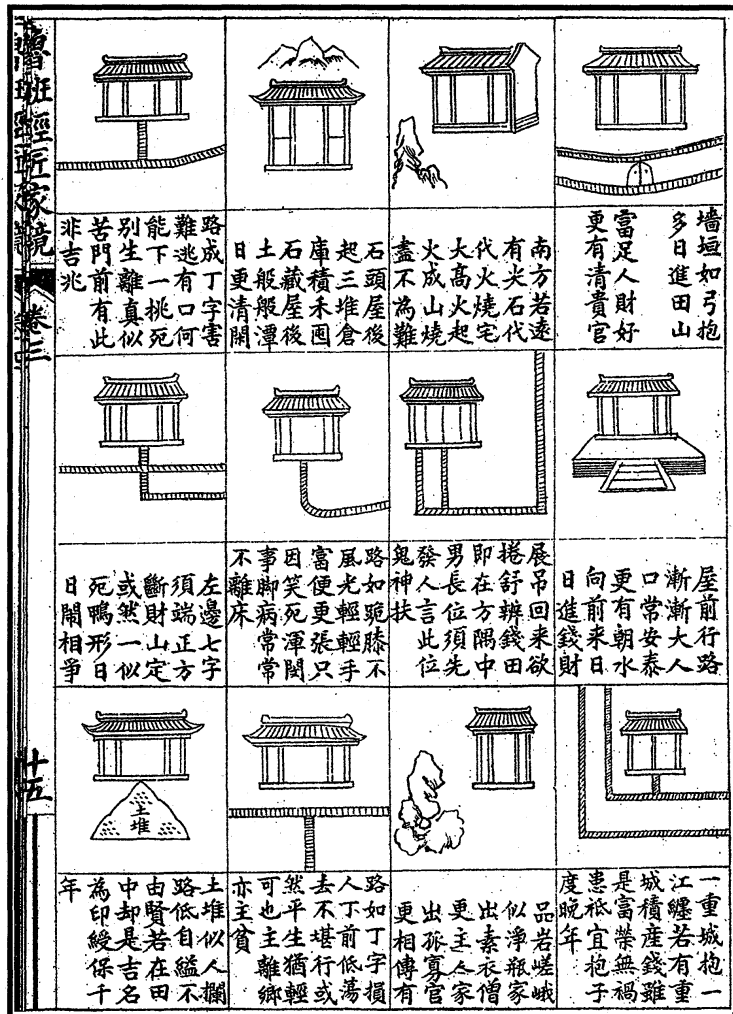 墻垣如弓抱
多日進田山
富足人財好
更有清貴官
南方若遠
有尖石代
代火燒宅
大高火起
火成山燒
盡不為難
石頭屋後
起三堆倉
庫積禾囤
石藏屋後
土般般潭
日更清閑
路成丁字害
難逃有口何
能下一挑死
别生離真似
苦門前有此
非吉兆
屋前行路
漸漸大人
口常安泰
更有朝水
向前来日
日進錢財
展吊回来欲
捲舒辨錢田
即在方隅中
男長位須先
發人言此位
鬼神扶
路如跪膝不
風光輕輕手
富便更張只
因笑死渾閑
事脚病常常
不離床
左邊七字
須端正方
斷財山定
或然一似
死鴨形日
日鬧相爭
一重城抱一
江纏若有重
城積産錢雖
是富榮無禍
患祗宜抱子
度晚年
品岩嵯峨
似淨瓶家
出素衣僧
更主人家
出孤寡官
更相傳有
路如丁字損
人丁前低蕩
去不堪行或
然平生猶輕
可也主離鄉
亦主貧
土堆
土堆似人攔
路低自縊不
由賢若在田
中却是吉名
為印綬保千
年
魯班經匠家鏡
卷三
十五